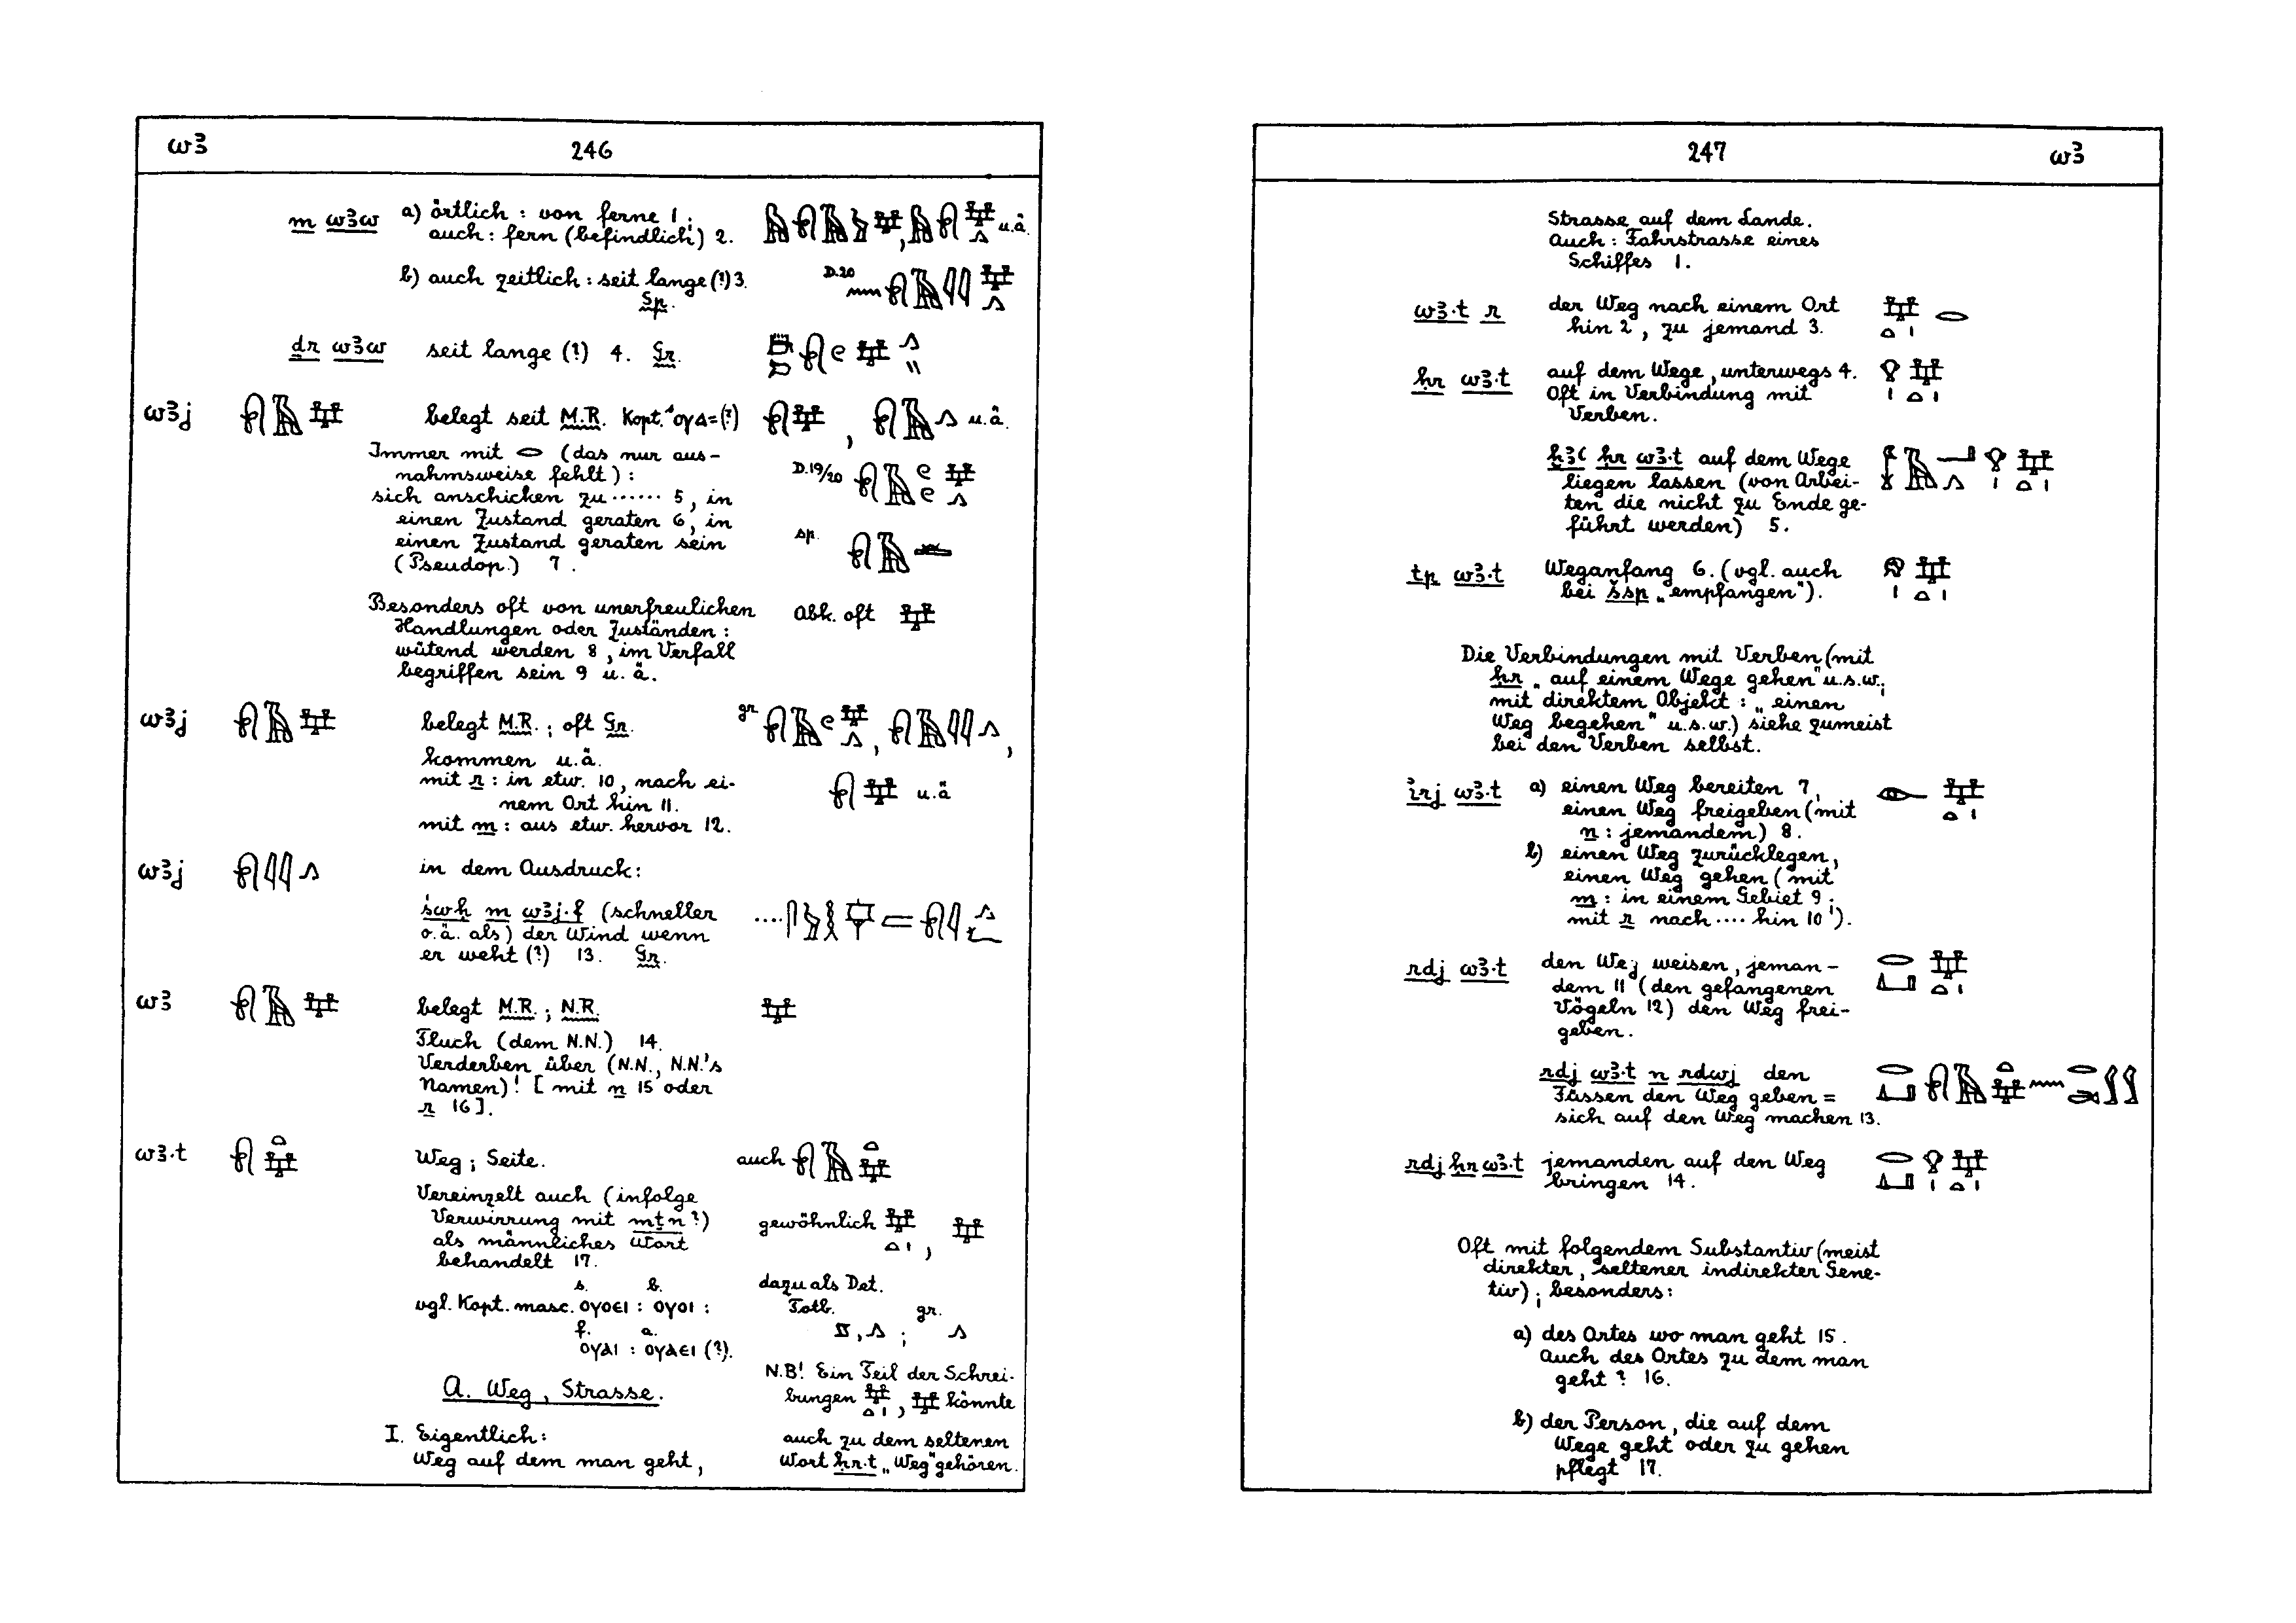 w3
246
m w3w a) örtlich : von ferne 1 ;
auch : fern (befindlich) 2. u.ä.
b) auch zeitlich : seit lange (?) 3. D.20
Sp.
dr w3w seit lange (?) 4. Gr.
w3j belegt seit M.R. Kopt. ⲟⲩⲁ=(?) , u.ä.
Immer mit (das nur aus-
nahmsweise fehlt) : D.19/20
sich anschicken zu ······ 5, in
einen Zustand geraten 6, in
einen Zustand geraten sein sp.
(Pseudop.) 7.
Besonders oft von unerfreulichen Abk. oft
Handlungen oder Zuständen :
wütend werden 8, im Verfall
begriffen sein 9 u. ä.
w3j belegt M.R. ; oft Gr. gr , ,
kommen u.ä.
mit r : in etw. 10, nach ei- u.ä
nem Ort hin 11.
mit m : aus etw. hervor 12.
w3j in dem Ausdruck :
św̔h m w3j.f (schneller ....
o.ä. als) der Wind wenn
er weht (?) 13. Gr.
w3 belegt M.R. ; N.R.
Fluch (dem N.N.) 14.
Verderben über (N.N., N.N.'s
Namen)! [mit n 15 oder
r 16].
w3·t Weg ; Seite. auch
Vereinzelt auch (infolge
Verwirrung mit mṯn ?) gewöhnlich ,
als männliches Wort
behandelt 17.
s. b. dazu als Det.
vgl. Kopt. masc. ⲟⲩⲟⲉⲓ : ⲟⲩⲟⲓ : Totb. gr.
f. a. , ;
ⲟⲩⲁⲓ : ⲟⲩⲁⲉⲓ (?).
N.B! Ein Teil der Schrei-
A. Weg, Strasse. bungen , könnte
I. Eigentlich : auch zu dem seltenen
Weg auf dem man geht, Wort ḥr.t „Weg" gehören.
247
w3
Strasse auf dem Lande.
Auch : Fahrstrasse eines
Schiffes 1.
w3·t r der Weg nach einem Ort
hin 2, zu jemand 3.
ḥr w3·t auf dem Wege, unterwegs 4.
Oft in Verbindung mit
Verben.
ḫ3ʿ ḥr w3·t auf dem Wege
liegen lassen (von Arbei-
ten die nicht zu Ende ge-
führt werden) 5.
tp w3·t Weganfang 6. (vgl. auch
bei šsp „empfangen").
Die Verbindungen mit Verben (mit
ḥr „auf einem Wege gehen" u.s.w.;
mit direktem Objekt : „einen
Weg begehen" u.s.w.) siehe zumeist
bei den Verben selbst.
irj w3·t a) einen Weg bereiten 7,
einen Weg freigeben (mit
n : jemandem) 8.
b) einen Weg zurücklegen,
einen Weg gehen (mit
m : in einem Gebiet 9 ;
mit r nach ···· hin 10).
rdj w3·t den Weg weisen, jeman-
dem 11 (den gefangenen
Vögeln 12) den Weg frei-
geben.
rdj w3·t n rdwj den
Füssen den Weg geben =
sich auf den Weg machen 13.
rdj ḥr w3·t jemanden auf den Weg
bringen 14.
Oft mit folgendem Substantiv (meist
direkter, seltener indirekter Gene-
tiv) ; besonders :
a) des Ortes wo man geht 15.
Auch des Ortes zu dem man
geht ? 16.
b) der Person, die auf dem
Wege geht oder zu gehen
pflegt 17.